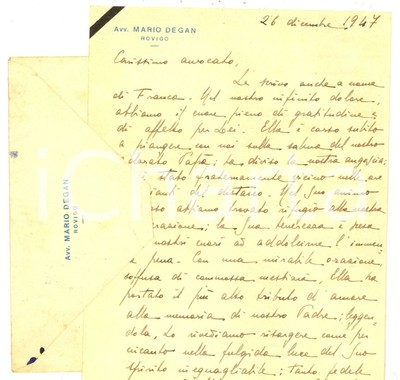 Avv. MARIO DEGAN
ROVIGO
26 dicembre 1947
Carissimo avvocato,
Le scrivo anche a nome
di Franca. Nel nostro infinito dolore,
abbiamo il cuore pieno di gratitudine e
di affetto per Lei. Ella è corso subito
a piangere con noi sulla salma del nostro
adorato Papà; ha diviso la nostra angoscia;
è stato fraternamente vicino nelle ore
del distacco. Nel Suo animo
abbiamo trovato rifugio alla nostra
la Sua tenerezza è scesa
nostri cuori ad addolcirne l'immensa
pena. Con una mirabile orazione
soffusa di commossa mestizia, Ella ha
portato il più alto tributo di amore
alla memoria di nostro Padre; leggen
dola, Lo rivediamo risorgere come per
incanto nella fulgida luce del Suo
spirito ineguagliabile; tanto fedele
Avv. MARIO DEGAN
ROVIGO